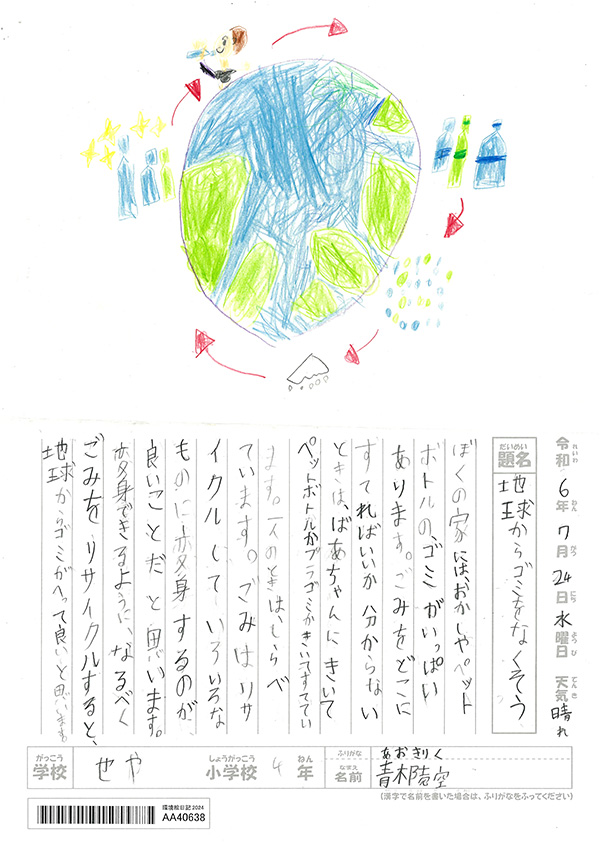 令和6年7月24日水曜日 天気晴れ
れいわ ねん がつ にち ようび てんき
だいめい
題名
地球からゴミをなくそう
ぼくの家には、おかしやペット
ボトルの、ゴミがいっぱい
あります。ごみをどこに
すてればいいか分からない
ときは、ばあちゃんにきいて
ペットボトルかプラゴミかきいてすててい
ます。一人のときは、しらべ
ています。ごみはリサ
イクルしていろいろな
ものに変身するのが、
良いことだと思います。
変身できるように、なるべく
ごみをリサイクルすると、
地球からゴミがへって良いと思います。
がっこう
学校
せや
しょうがっこう
小学校
4
ねん
年
ふりがな
あおきりく
なまえ
名前
青木陸空
(漢字で名前を書いた場合は、ふりがなをふってください)
環境絵日記2024
AA40638